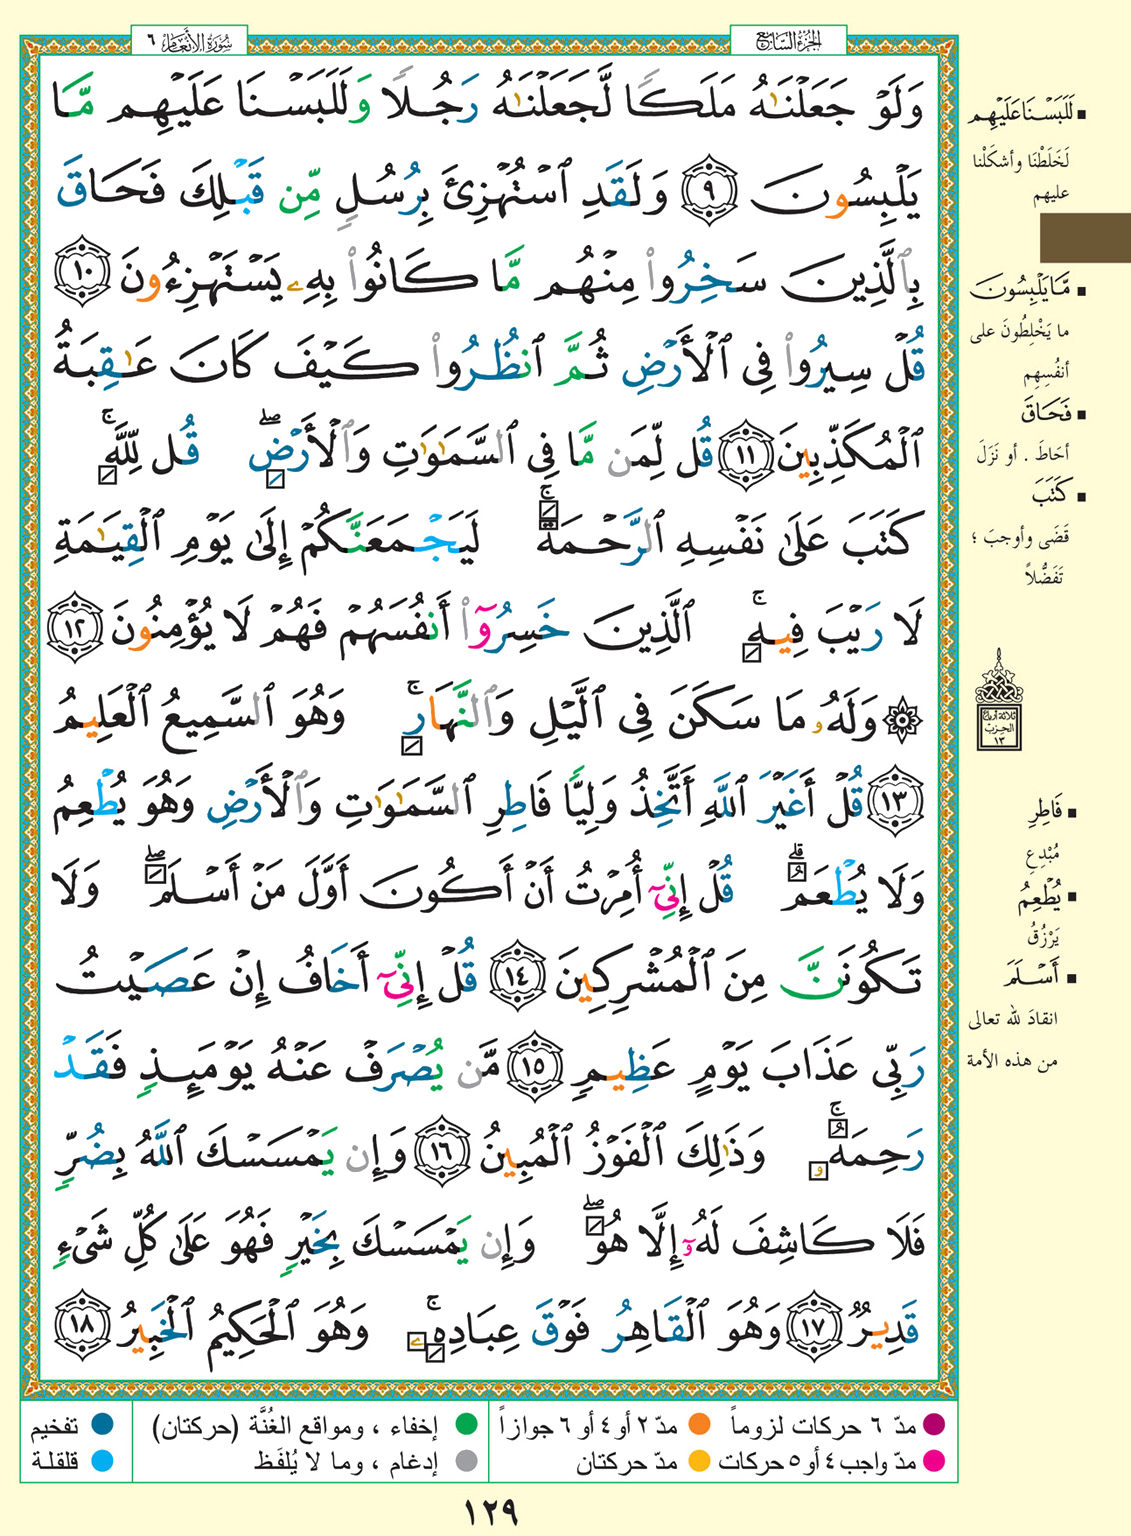 الجزء السابع
سورة الأنعام ٦
وَلَوْ جَعَلْنَٰهُ مَلَكًا لَّجَعَلْنَٰهُ رَجُلًا وَلَلَبَسْنَا عَلَيْهِم مَّا
يَلْبِسُونَ ٩ وَلَقَدِ ٱسْتُهْزِئَ بِرُسُلٍ مِّن قَبْلِكَ فَحَاقَ
بِٱلَّذِينَ سَخِرُوا۟ مِنْهُم مَّا كَانُوا۟ بِهِۦ يَسْتَهْزِءُونَ ١٠
قُلْ سِيرُوا۟ فِى ٱلْأَرْضِ ثُمَّ ٱنظُرُوا۟ كَيْفَ كَانَ عَٰقِبَةُ
ٱلْمُكَذِّبِينَ ١١ قُل لِّمَن مَّا فِى ٱلسَّمَٰوَٰتِ وَٱلْأَرْضِ ۖ قُل لِّلَّهِ ۚ
كَتَبَ عَلَىٰ نَفْسِهِ ٱلرَّحْمَةَ ۚ لَيَجْمَعَنَّكُمْ إِلَىٰ يَوْمِ ٱلْقِيَٰمَةِ
لَا رَيْبَ فِيهِ ۚ ٱلَّذِينَ خَسِرُوٓا۟ أَنفُسَهُمْ فَهُمْ لَا يُؤْمِنُونَ ١٢
۞ وَلَهُۥ مَا سَكَنَ فِى ٱلَّيْلِ وَٱلنَّهَارِ ۚ وَهُوَ ٱلسَّمِيعُ ٱلْعَلِيمُ
١٣ قُلْ أَغَيْرَ ٱللَّهِ أَتَّخِذُ وَلِيًّا فَاطِرِ ٱلسَّمَٰوَٰتِ وَٱلْأَرْضِ وَهُوَ يُطْعِمُ
وَلَا يُطْعَمُ ۗ قُلْ إِنِّىٓ أُمِرْتُ أَنْ أَكُونَ أَوَّلَ مَنْ أَسْلَمَ ۖ وَلَا
تَكُونَنَّ مِنَ ٱلْمُشْرِكِينَ ١٤ قُلْ إِنِّىٓ أَخَافُ إِنْ عَصَيْتُ
رَبِّى عَذَابَ يَوْمٍ عَظِيمٍ ١٥ مَّن يُصْرَفْ عَنْهُ يَوْمَئِذٍ فَقَدْ
رَحِمَهُۥ ۚ وَذَٰلِكَ ٱلْفَوْزُ ٱلْمُبِينُ ١٦ وَإِن يَمْسَسْكَ ٱللَّهُ بِضُرٍّ
فَلَا كَاشِفَ لَهُۥٓ إِلَّا هُوَ ۖ وَإِن يَمْسَسْكَ بِخَيْرٍ فَهُوَ عَلَىٰ كُلِّ شَىْءٍ
قَدِيرٌ ١٧ وَهُوَ ٱلْقَاهِرُ فَوْقَ عِبَادِهِۦ ۚ وَهُوَ ٱلْحَكِيمُ ٱلْخَبِيرُ ١٨
لَلَبَسْنَا عَلَيْهِم
لَخَلَطْنَا وأشكَلْنا
عليهم
مَّا يَلْبِسُونَ
ما يَخْلِطُونَ على
أنفُسِهِم
فَحَاقَ
أحَاطَ . أو نَزَلَ
كَتَبَ
قَضَى وأوجبَ ؛
تَفَضُّلاً
ثلاثة أرباع
الحزب
١٣
فَاطِرِ
مُبْدِعِ
يُطْعِمُ
يَرْزُقُ
أَسْلَمَ
انقادَ لله تعالى
من هذه الأمة
مدّ ٦ حركات لزوماً
مدّ ٢ أو ٤ أو ٦ جوازاً
إخفاء ، ومواقع الغُنَّة (حركتان)
تفخيم
مدّ واجب ٤ أو ٥ حركات
مدّ حركتان
إدغام ، وما لا يُلفَظ
قلقلة
١٢٩